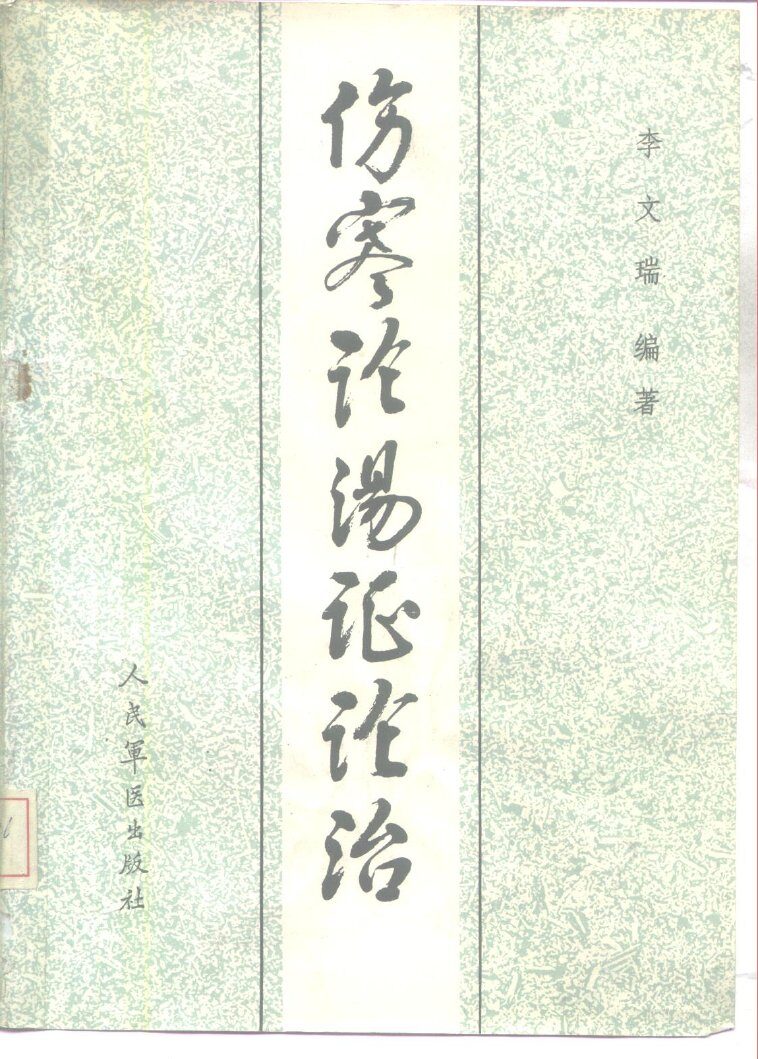 李文瑞编著
伤寒论汤证论治
人民軍医出版社